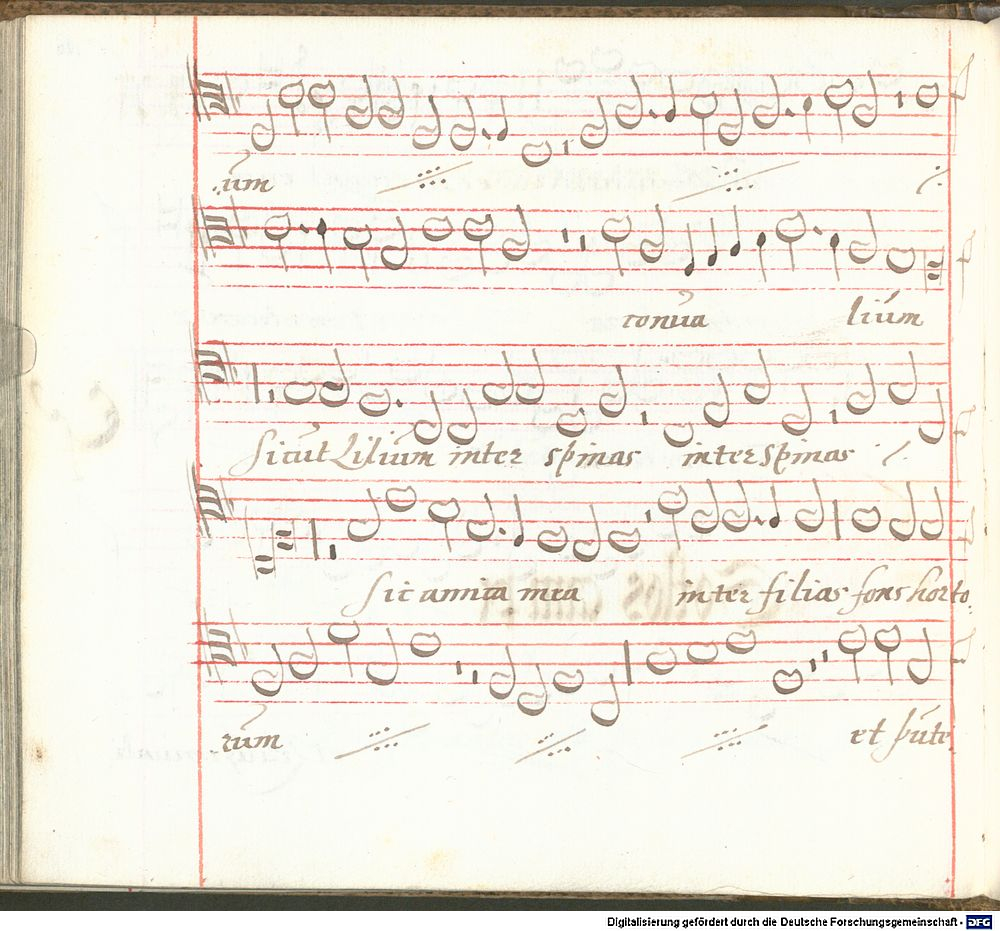 um
conua lium
Sicut Lilium inter spinas inter spinas
Sic amica mea inter filias fons horto
rum et pute
Digitalisierung gefördert durch die Deutsche Forschungsgemeinschaft - DFG